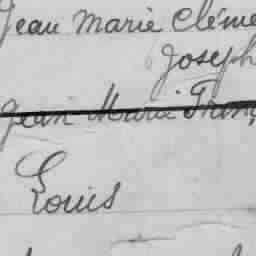 Jean Marie Cléme
Joseph
Jean Marie Franç
Louis